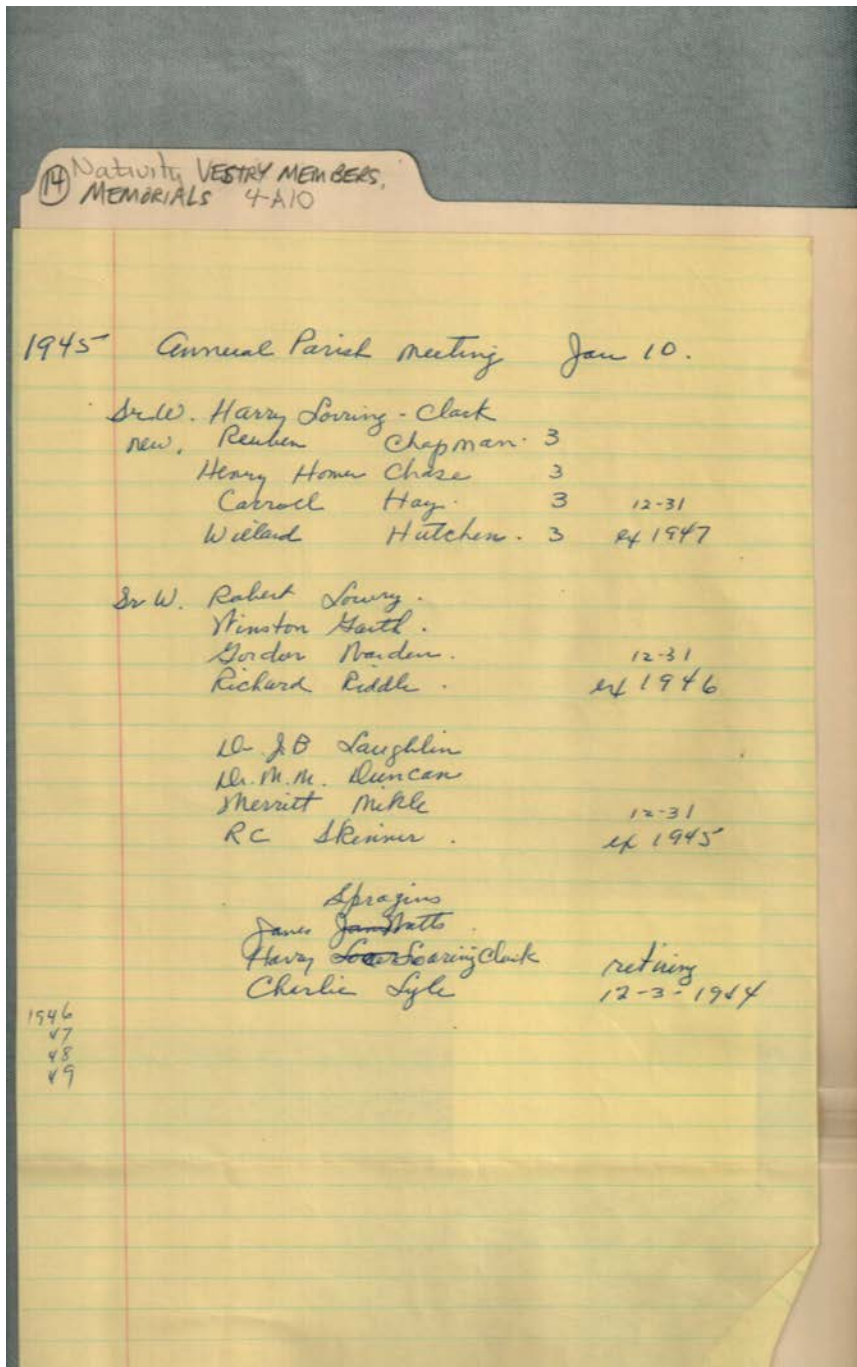 (14) Nativity VESTRY MEMBERS,
MEMORIALS 4-A10
1945 Annual Parish Meeting Jan 10.
Sr. W. Harry Lovring - Clark
new. Reuben Chapman. 3
Henry Homer Chase 3
Carroll Hay. 3 12-31
Willard Hutchen. 3 ex 1947
Sr W. Robert Lowry.
Winston Garth.
Gordon 12-31
Richard Riddle. ex 1946
Dr. J B Laughlin
Dr. M. M. Duncan
Merritt Mikle 12-31
RC Skinner. ex 1945
Spragins
James Watts.
Harry Loaring Clark retiring
Charlie Lyle 12-3-1944
1946
47
48
49